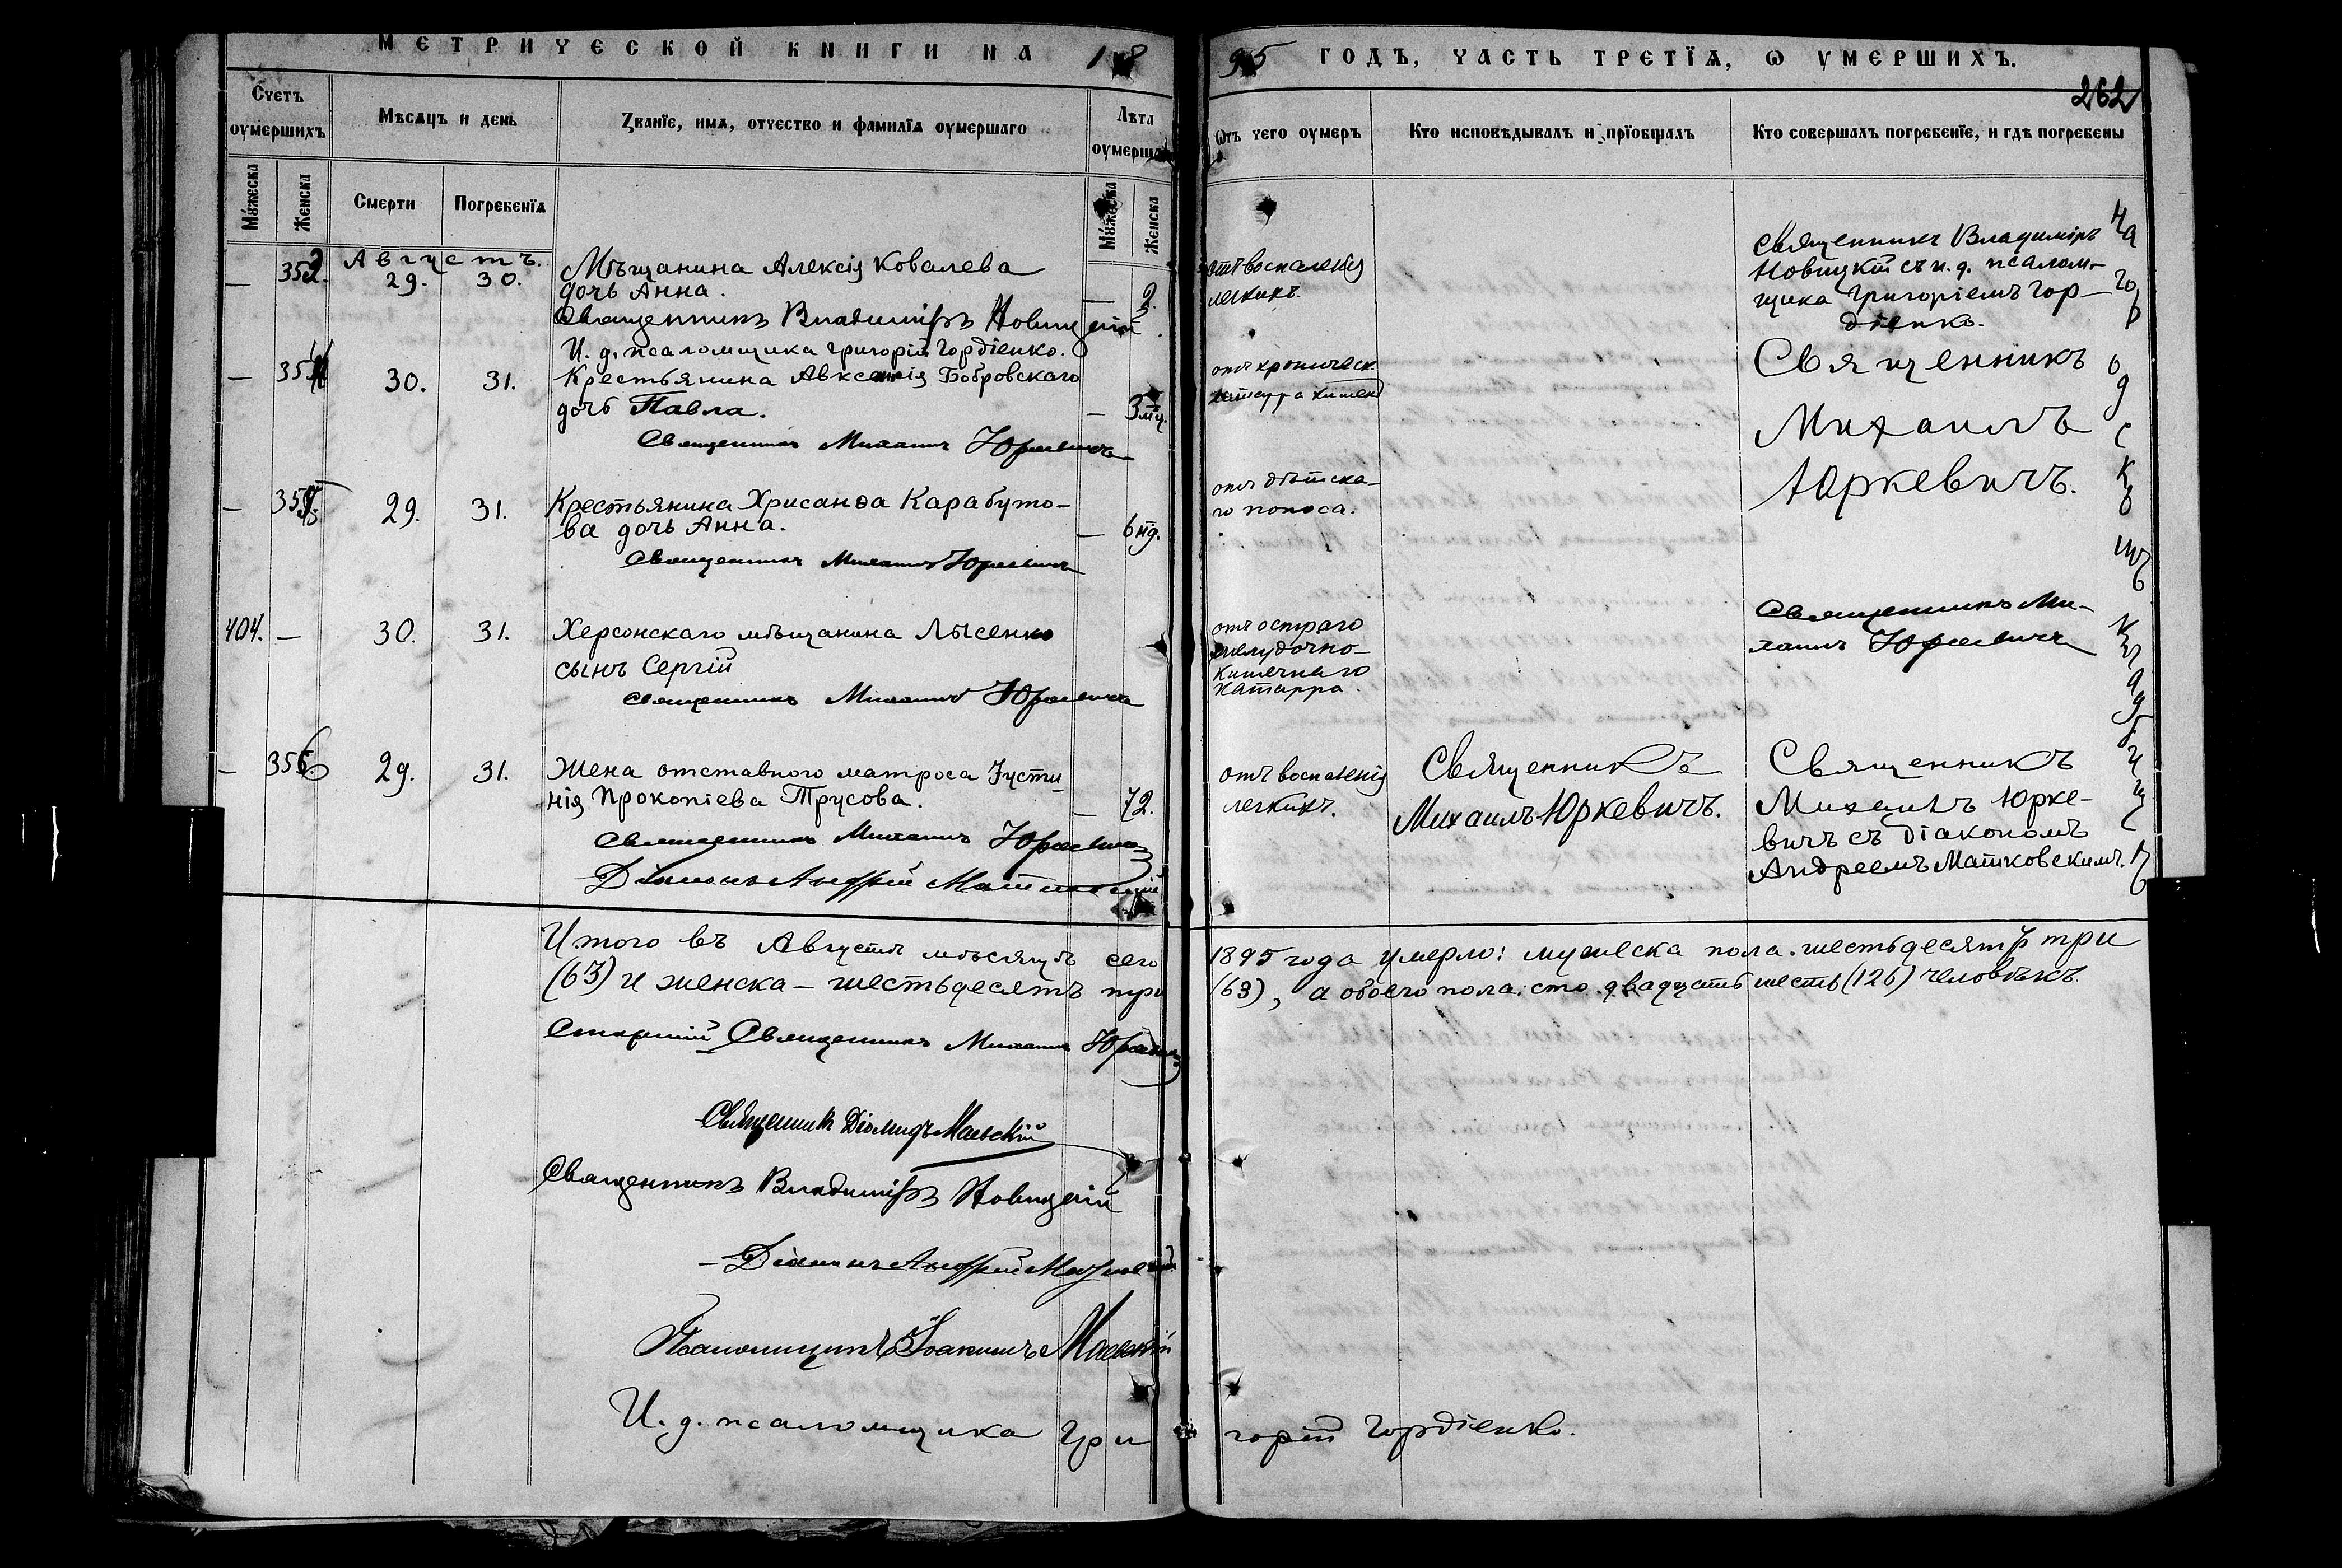 МЕТРИЧЕСКОЙ КНИГИ НА 1895 ГОДЪ, ЧАСТЬ ТРЕТЇѦ, Ѡ УМЕРШИХЪ.
262
Счетъ оумершихъ
Мѣсѧцъ и день
Званїе, имѧ, отчество и фамилїѧ оумершаго
Лѣта оумерша
Ѿъ чего оумеръ
Кто исповѣдывалъ и прїобщалъ
Кто совершалъ погребенїе, и гдѣ погребены
Мужеска
Женска
Смерти
Погребенїѧ
Мужеска
Женска
Августъ.
— 352. 29. 30.
Мѣщанина Алексія Ковалева
дочь Анна.
— 2.
Священникъ Владиміръ Новицкій
И. д. псаломщика Григорій Гордіенко.
отъ воспаленія
легкихъ.
Священникъ Владиміръ
Новицкій съ и. д. псалом-
щика Григоріемъ Гор-
діенко.
— 354 30. 31.
Крестьянина Авксентія Бобровскаго
дочь Павла.
— 3 мц.
Священникъ Михаилъ Юркевичъ
отъ хроническ.
катарра кишекъ
Священникъ
Михаилъ
Юркевичъ.
— 355. 29. 31.
Крестьянина Хрисанѳа Карабуто-
ва дочь Анна.
— 6 нд.
Священникъ Михаилъ Юркевичъ
отъ дѣтска-
го поноса.
404. — 30. 31.
Херсонскаго мѣщанина Лысенко
сынъ Сергій
Священникъ Михаилъ Юркевичъ
отъ остраго
желудочно-
кишечнаго
катарра.
Священникъ Ми-
хаилъ Юркевичъ
— 356 29. 31.
Жена отставного матроса Іусти-
нія Прокопіева Трусова.
— 72.
Священникъ Михаилъ Юркевичъ
Діаконъ Андрей Матковскій
отъ воспаленія
легкихъ.
Священникъ
Михаилъ Юркевичъ.
Священникъ
Михаилъ Юрке-
вичъ съ діакономъ
Андреемъ Матковскимъ.
На городскомъ кладбищѣ
Итого въ Августѣ мѣсяцѣ сего 1895 года умерло: мужеска пола шестьдесятъ три
(63) и женска – шестьдесятъ три (63), а обоего пола: сто двадцать шесть (126) человѣкъ.
Старшій Священникъ Михаилъ Юркевичъ
Священникъ Діомидъ Маевскій
Священникъ Владиміръ Новицкій
Діаконъ Андрей Матковскій
Псаломщикъ Іоакимъ Маевскій
И. д. псаломщика Григорій Гордіенко.